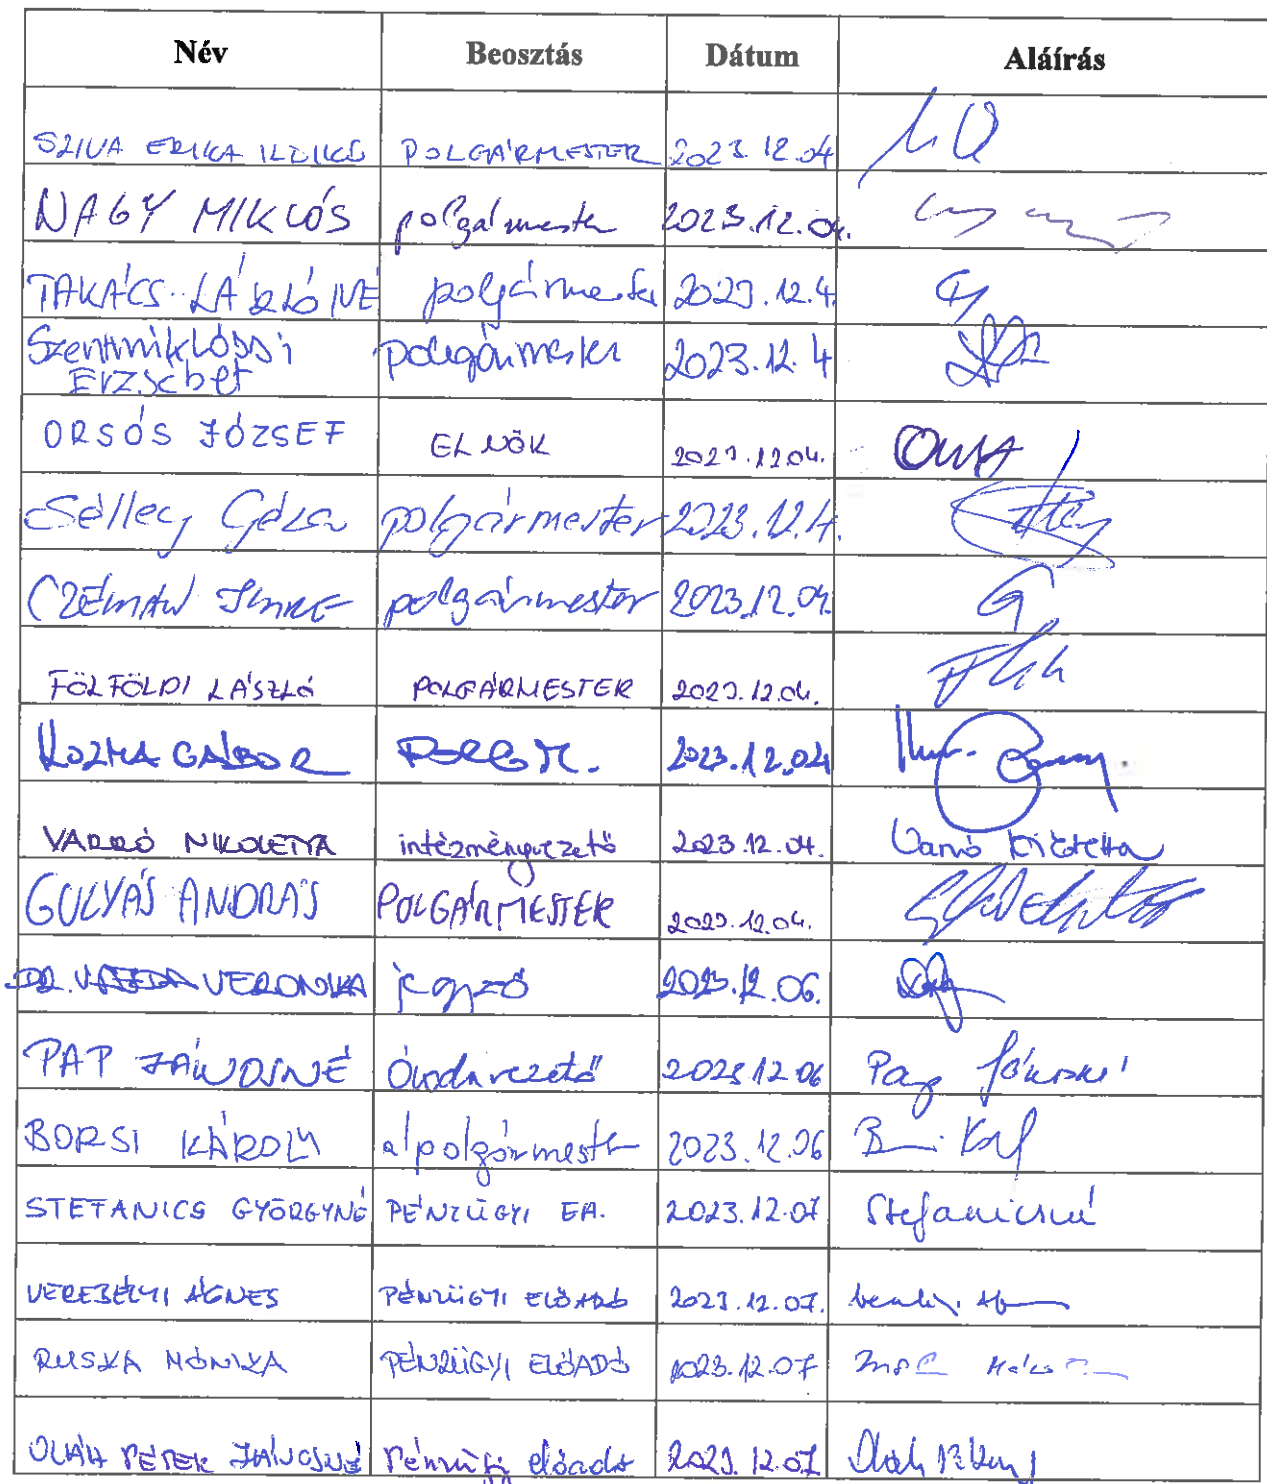 Név Beosztás Dátum Aláírás
SZIVA ERIKA ILDIKÓ POLGÁRMESTER 2023.12.04
NAGY MIKLÓS polgármester 2023.12.04.
TAKÁCS LÁSZLÓNÉ polgármester 2023.12.4.
Szentmiklóssi polgármester 2023.12.4
Erzsébet
ORSÓS JÓZSEF ELNÖK 2023.12.04.
Csélley Géza polgármester 2023.12.4.
CZÉMÁN IMRE polgármester 2023.12.04.
FÖLFÖLDI LÁSZLÓ POLGÁRMESTER 2023.12.04.
KOZMA GÁBOR POLG M. 2023.12.04
VARRÓ NIKOLETTA intézményvezető 2023.12.04. Varró Nikoletta
GULYÁS ANDRÁS POLGÁRMESTER 2023.12.04.
DR. VAJDA VERONIKA jegyző 2023.12.06.
PAP JÁNOSNÉ Óvodavezető 2023.12.06 Pap Jánosné
BORSI KÁROLY alpolgármester 2023.12.06
STEFANICS GYÖRGYNÉ PÉNZÜGYI EA. 2023.12.07 Stefanicsné
VEREBÉLYI ÁGNES PÉNZÜGYI ELŐADÓ 2023.12.07.
RUSKA MÓNIKA PÉNZÜGYI ELŐADÓ 2023.12.07
OLÁH PÉTER JÁNOSNÉ Pénzügyi előadó 2023.12.07